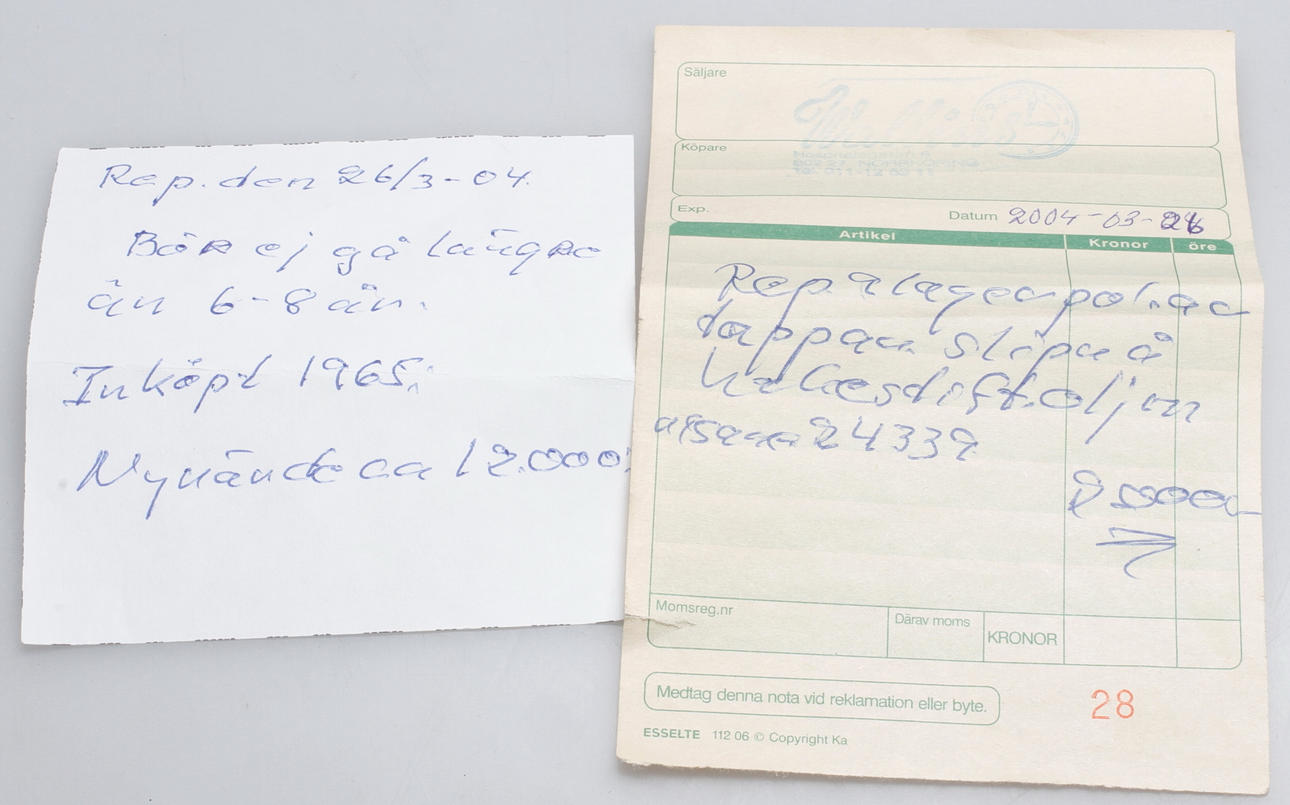 Rep. den 26/3-04.
Bör ej gå längre
än 6-8 år.
Inköpt 1965.
Nyvärde ca 12.000:
Säljare
Köpare
NORRKÖPING
Exp.
Datum 2004-03-26
Artikel Kronor öre
Rep. 2 lager polerar
tappar slipa å
oljor
24332
Momsreg.nr
Därav moms
KRONOR
Medtag denna nota vid reklamation eller byte.
28
ESSELTE 112 06 © Copyright Ka